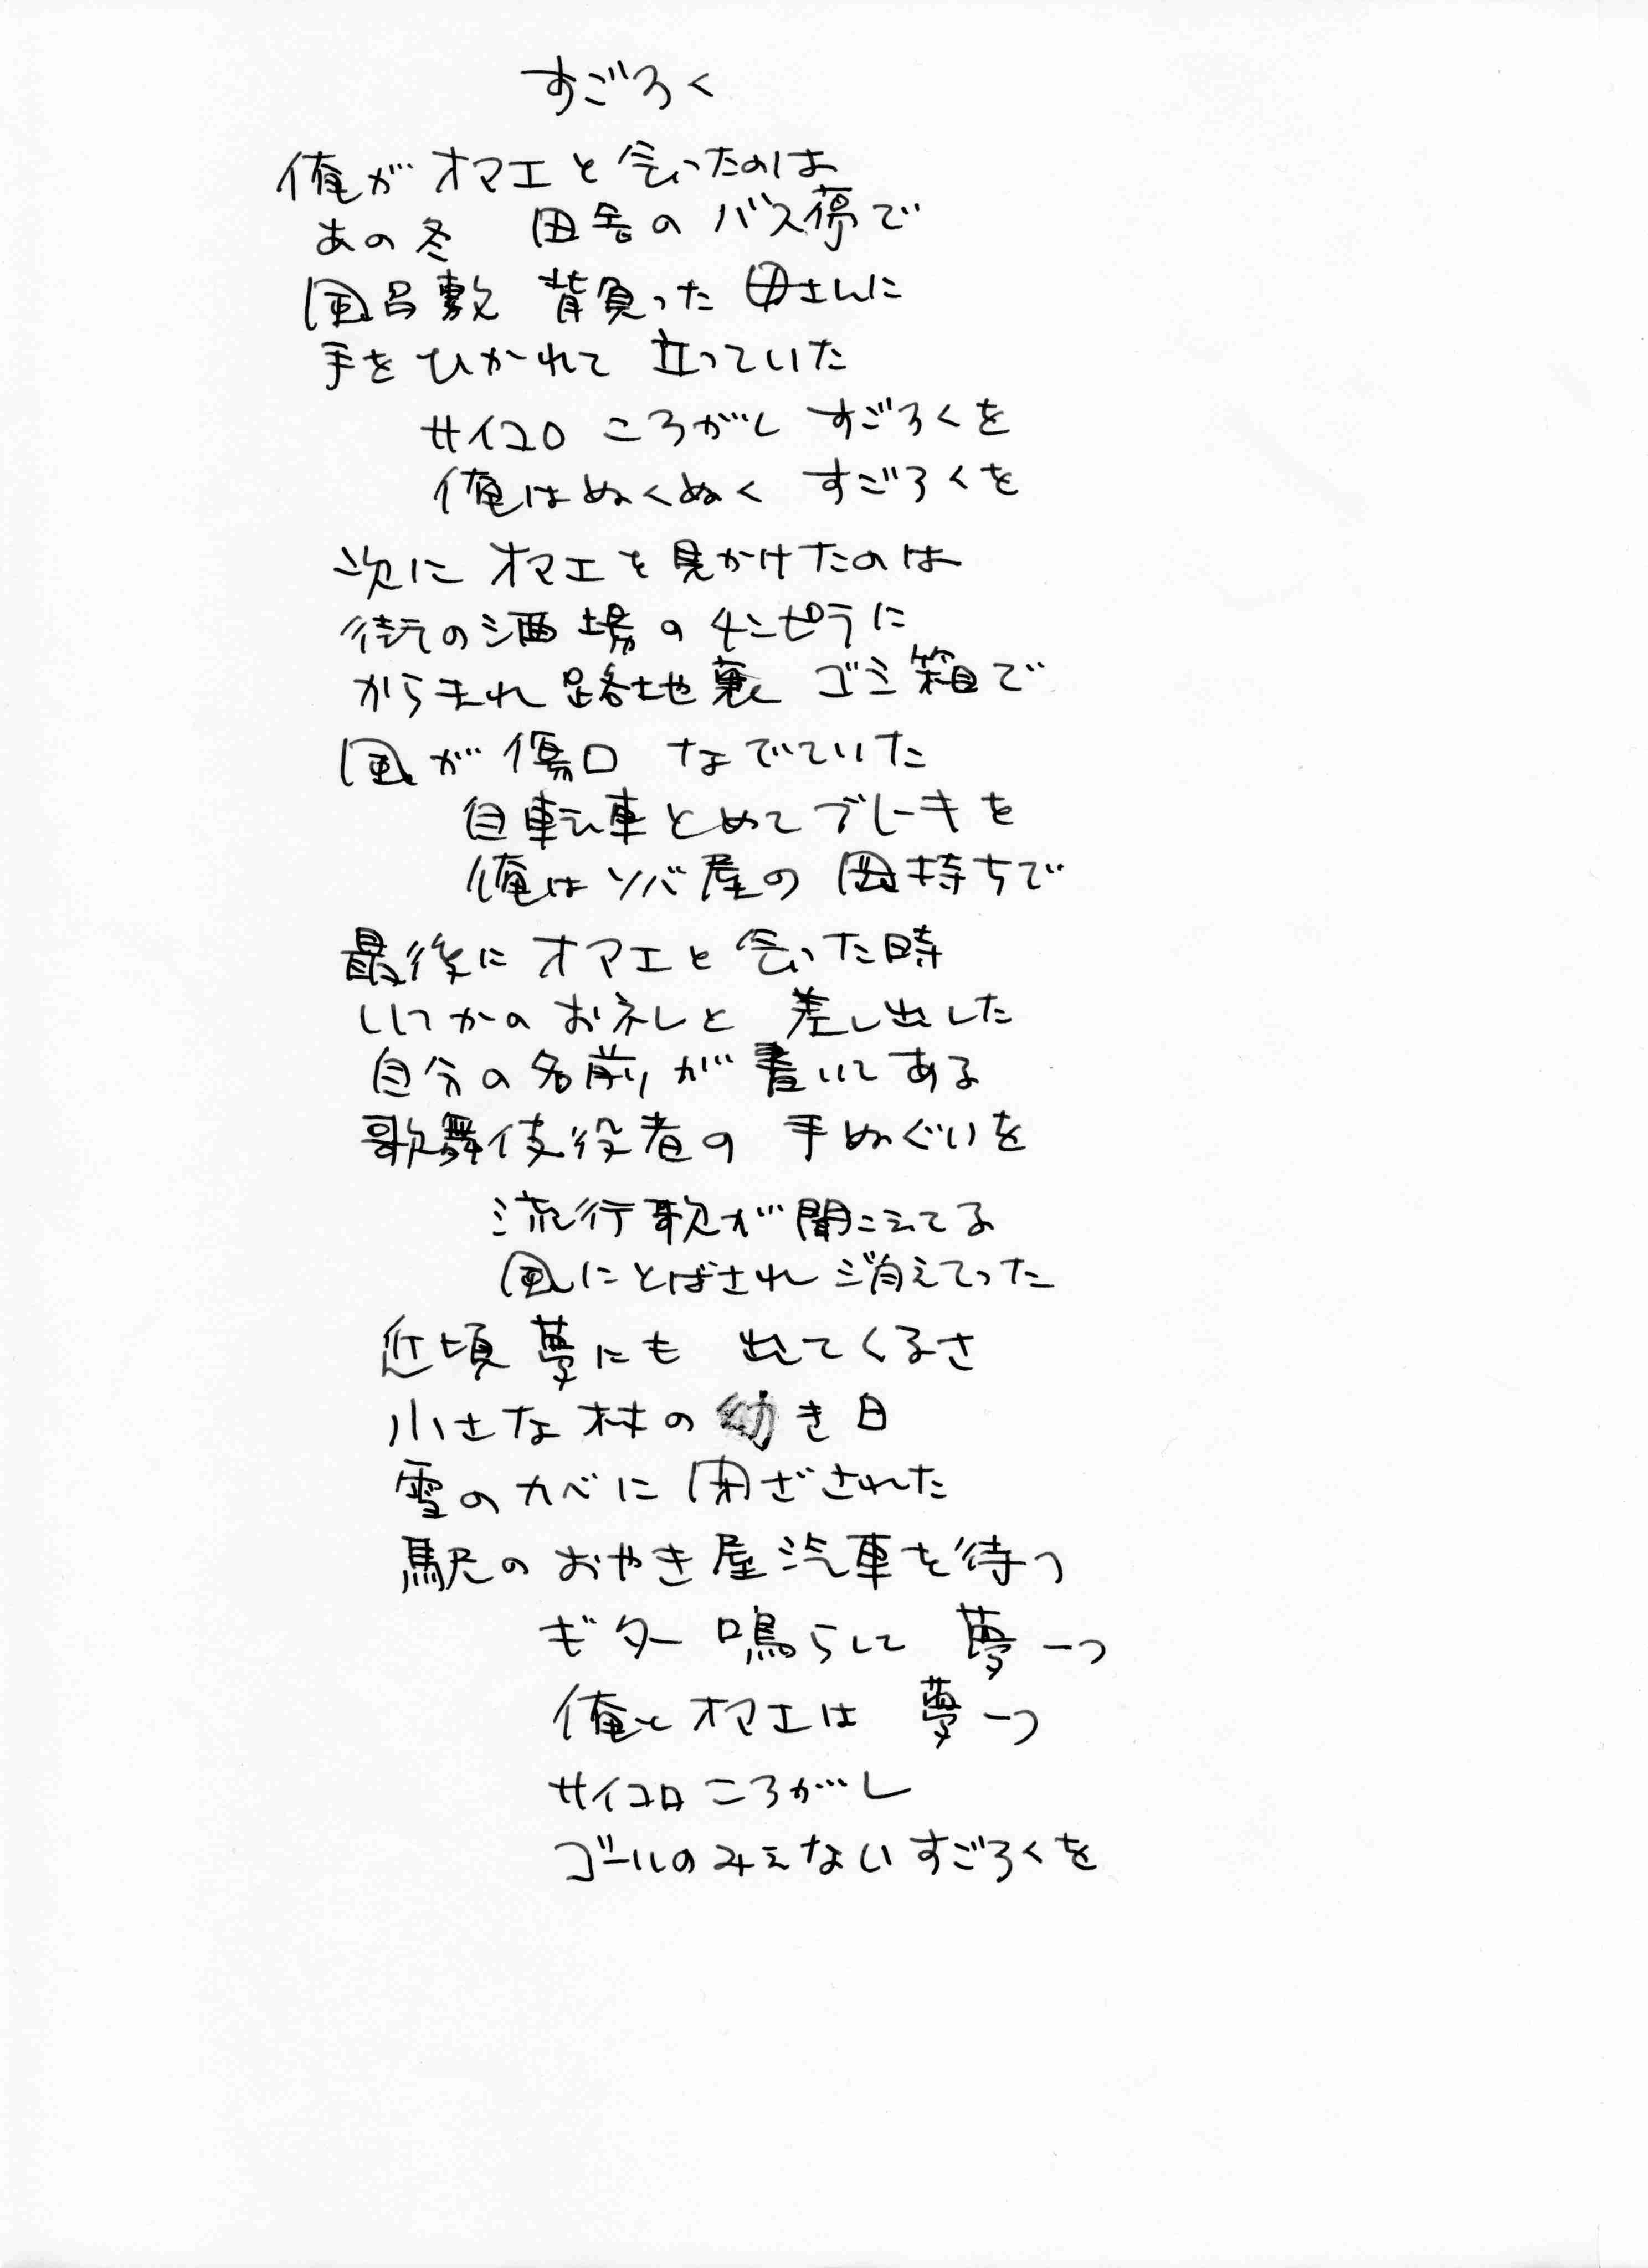 すごろく
俺が オマエと 会ったのは
あの冬 田舎の バス停で
風呂敷 背負った 母さんに
手を ひかれて 立っていた
サイコロ ころがし すごろくを
俺はぬくぬく すごろくを
次に オマエを 見かけたのは
街の酒場の チンピラに
からまれ 路地裏 ゴミ箱で
風が 傷口 なでていた
自転車 とめて ブレーキを
俺は ソバ屋の 岡持ちで
最後に オマエと 会った時
いつかの お礼と 差し出した
自分の名前が 書いて ある
歌舞伎役者の 手ぬぐいを
流行歌が 聞こえてる
風に とばされ 消えてった
近頃 夢にも 出てくるさ
小さな 村の 幼き日
雪の カベに 閉ざされた
駅の おやき屋 汽車を待つ
ギター 鳴らして 夢一つ
俺と オマエは 夢一つ
サイコロ ころがし
ゴールの みえない すごろくを